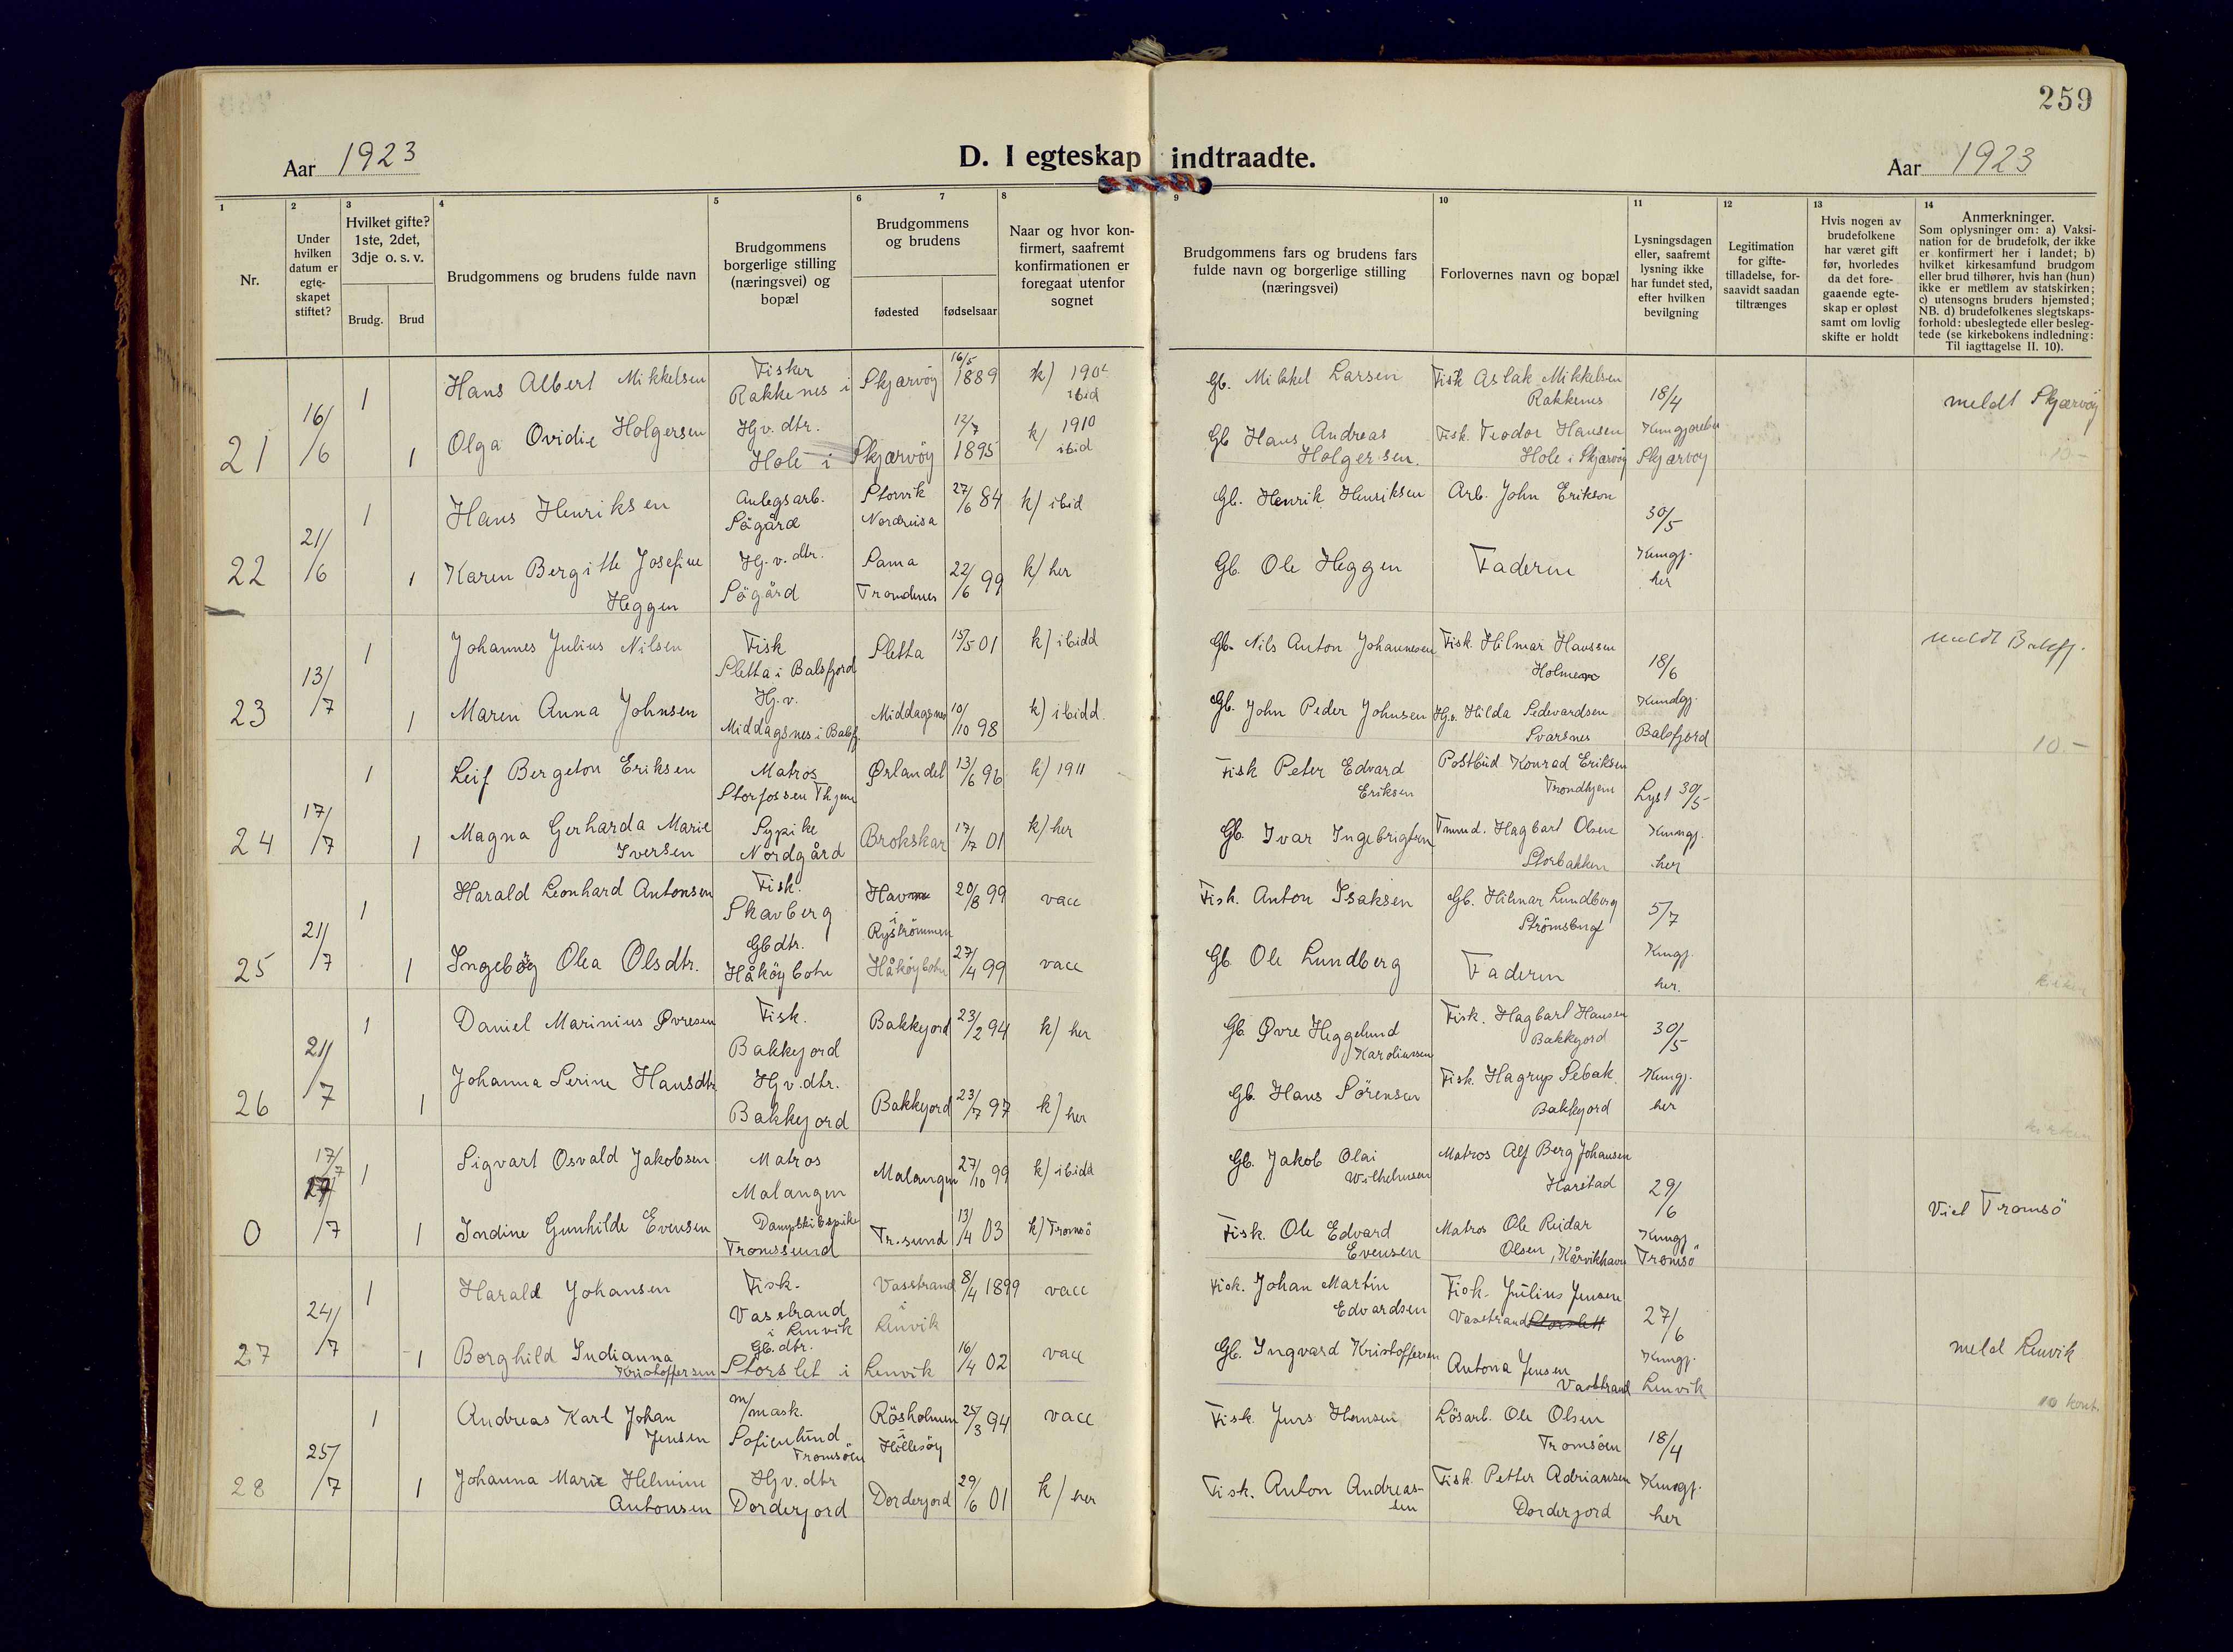 259
Aar 1923
D. I egteskap indtraadte.
Aar 1923
1
Nr.
2
Under hvilken datum er egte-skapet stiftet?
3
Hvilket gifte? 1ste, 2det, 3dje o. s. v.
Brudg.
Brud
4
Brudgommens og brudens fulde navn
5
Brudgommens borgerlige stilling (næringsvei) og bopæl
6
7
Brudgommens og brudens
fødested
fødselsaar
8
Naar og hvor kon-firmert, saafremt konfirmationen er foregaat utenfor sognet
9
Brudgommens fars og brudens fars fulde navn og borgerlige stilling (næringsvei)
10
Forlovernes navn og bopæl
11
Lysningsdagen eller, saafremt lysning ikke har fundet sted, efter hvilken bevilgning
12
Legitimation for gifte-tilladelse, for-saavidt saadan tiltrænges
13
Hvis nogen av brudefolkene har været gift før, hvorledes da det fore-gaaende egte-skap er opløst samt om lovlig skifte er holdt
14
Anmerkninger.
Som oplysninger om: a) Vaksi-nation for de brudefolk, der ikke er konfirmert her i landet; b) hvilket kirkesamfund brudgom eller brud tilhører, hvis han (hun) ikke er medlem av statskirken; c) utensogns bruders hjemsted; NB. d) brudefolkenes slegtskaps-forhold: ubeslegtede eller besleg-tede (se kirkebokens indledning: Til iagttagelse II. 10).
21
16/6
1
Hans Albert Mikkelsen
Fisker
Rakkenes i
Skjærvöy
16/5 1889
k) 1904
ibid
Gb. Mikkel Larsen
Fisk Aslak Mikkelsen
Rakkenes
18/4
meldt Skjærvöy
1
Olga Ovidie Holgersen
Hjv. dtr.
Hole i
Skjærvöy
12/7 1895
k) 1910
ibid
Gb Hans Andreas
Holgersen.
Fisk. Teodor Hansen
Hole i Skjærvöy
Skjærvoy
22
21/6
1
Hans Henriksen
Anlegsarb.
Sögård
Storvik
Nordreisa
27/6 84
k) ibid
Gb. Henrik Henriksen
Arb. John Erikson
30/5
1
Karen Bergitte Josefine
Heggen
Hj. v. dtr.
Sögård
Sama
Trondenes
22/6 99
k) her
Gb. Ole Heggen
Faderen
Kungj.
her
23
13/7
1
Johannes Julius Nilsen
Fisk
Sletta i Balsfjord
Sletta
15/5 01
k) ibidd
Gb. Nils Anton Johannesen
Fisk. Hilmar Hanssen
18/6
meldt Balsfj.
1
Maren Anna Johnsen
Hj. v.
Middagsnes i Balsfj.
Middagsnes
10/10 98
k) ibidd.
Gb. John Peder Johnsen
Hj.v. Hilda Sedevardsen
Svarsnes
Kundgj.
Balsfjord
10.-
24
17/7
1
Leif Bergeton Eriksen
Matros
Storfossen Thjem
Ørlandet
13/6 96
k) 1911
Fisk Peter Edvard
Eriksen
Postbud Konrad Eriksen
Trondhjem
Lyst 30/5
1
Magna Gerharda Marie
Iversen
Sypike
Nordgård
Brokskar
17/7 01
k) her
Gb. Ivar Ingebrigtsen
Hagbart Olsen
Storbakken
Kunngj.
her
25
21/7
1
Harald Leonhard Antonsen
Fisk.
Skavberg
i
Ryströmmen
20/8 99
vacc
Fisk. Anton Isaksen
Gb. Hilmar Lundberg
5/7
1
Ingebörg Olea Olsdtr.
Gbdtr.
Håköybotn
Håköybotn
27/4 99
vacc
Gb. Ole Lundberg
Faderen
Kungj.
her.
26
21/7
1
Daniel Marinius Øvresen
Fisk.
Bakkejord
Bakkejord
23/2 94
k) her
Gb. Øvre Heggelund
Karoliussen
Fisk. Hagbart Hansen
Bakkejord
30/5
1
Johanna Serine Hansdtr
Hjv. dtr.
Bakkejord
Bakkejord
23/7 97
k) her
Gb. Hans Sörensen
Fisk. Hagrup Sebak.
Bakkejord
Kungj.
her
kirken
0
17/7
1
Sigvart Osvald Jakobsen
Matros
Malangen
Malangen
27/10 99
k) ibidd
Gb. Jakob Olai
Wilhelmsen
Matros Alf Berg Johansen
Harstad
29/6
Viet Tromsö
1
Indine Gunhilde Evensen
Dampskibspike
Tromssund
Tr.sund
13/4 03
k) Tromsö
Fisk. Ole Edvard
Evensen
Matros Ole Reidar
Olsen, Kårvikhavn
Kungj
Tromsö
27
24/7
1
Harald Johansen
Fisk.
Vasstrand
i Lenvik
Vasstrand
i
Lenvik
8/4 1899
vacc
Fisk. Johan Martin
Edvardsen
Fisk. Julius Jensen
Vasstrand Storslett
27/6
meld Lenvik
1
Borghild Indianna
Kristoffersen
Gb. dtr.
Storslet i
Lenvik
16/4 02
vacc
Gb. Ingvard Kristoffersen
Antona Jensen
Vasstrand
Kungj.
Lenvik
10 kont.
28
25/7
1
Andreas Karl Johan
Jensen
m/mask.
Sofienlund
Tromsöen
Rösholmen
i
Hillesöy
25/3 94
vacc
Fisk. Jens Hansen
Lösarb. Ole Olsen
Tromsöen
18/4
1
Johanna Marie Helmine
Antonsen
Hjv. dtr
Dorderjord
Dorderjord
29/6 01
k) her
Fisk. Anton Andreas-
sen
Fisk. Petter Adriansen
Dorderjord
Kungj.
her